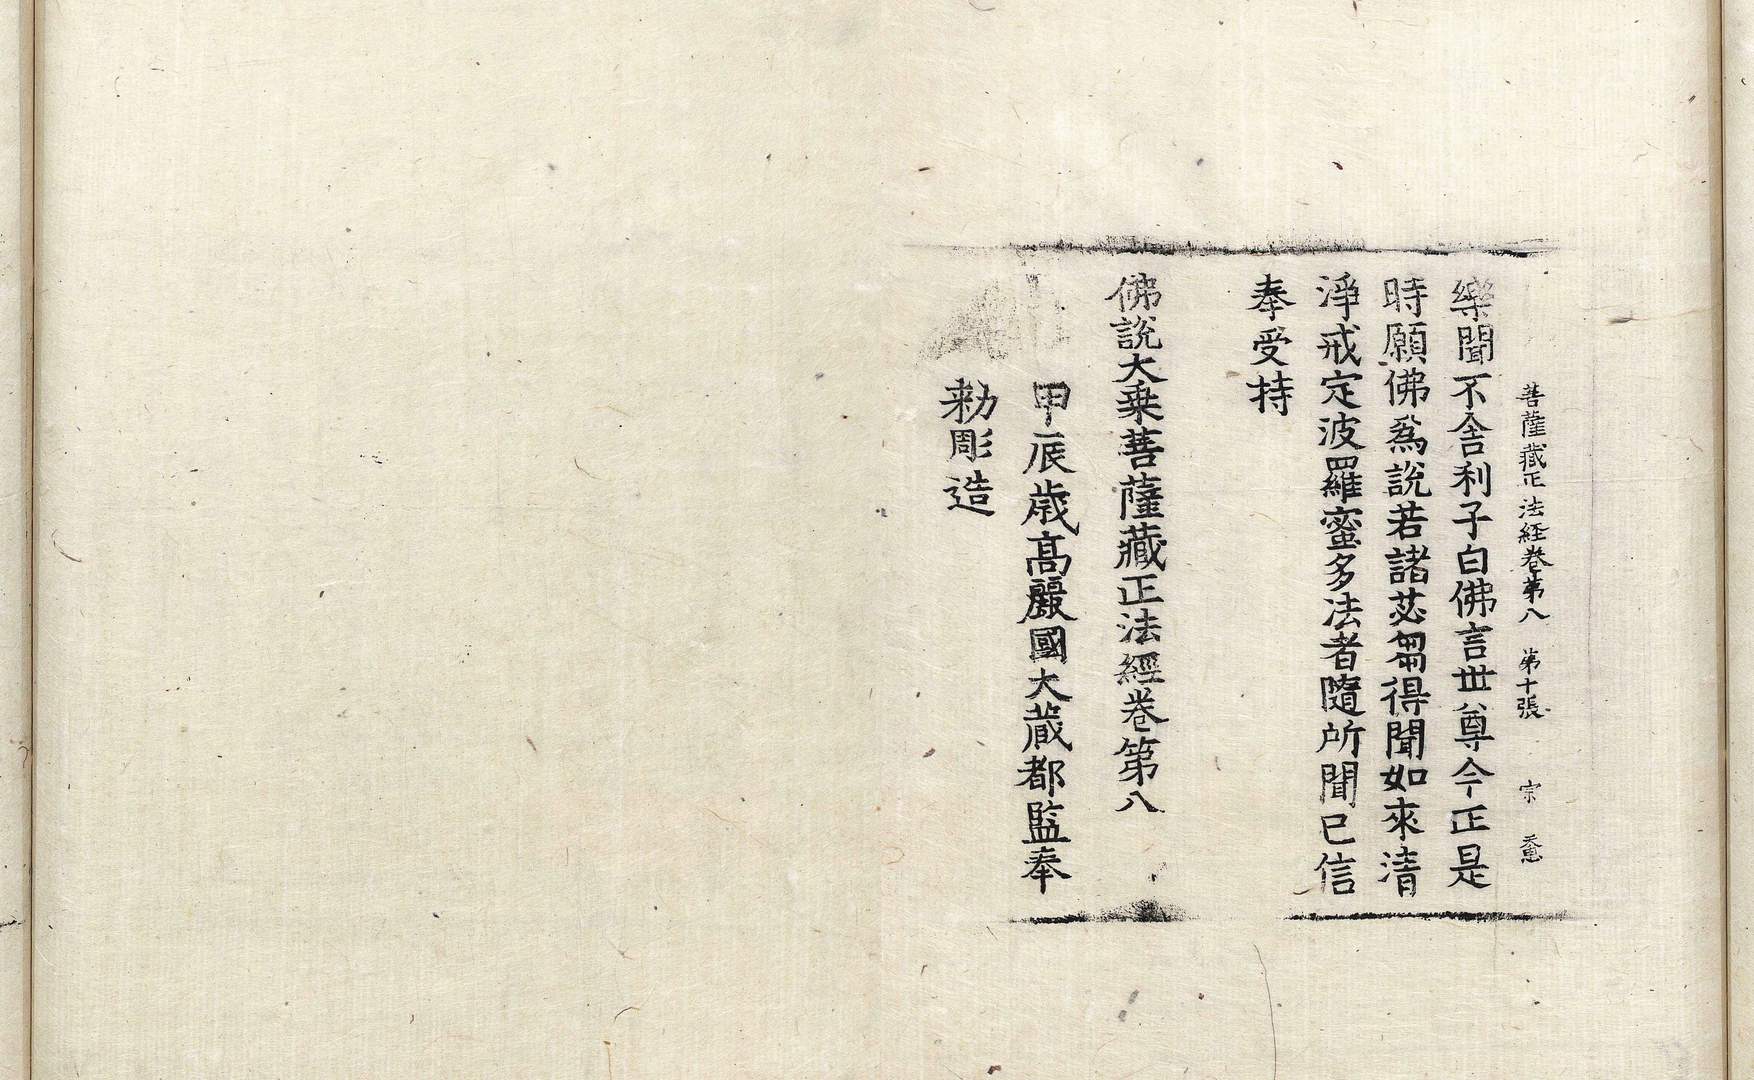 菩薩藏正法経卷第八 第十張 宗
樂聞不舎利子白佛言世尊今正是
時願佛爲說若諸苾芻得聞如來清
淨戒定波羅蜜多法者隨所聞已信
奉受持
佛說大乗菩薩藏正法經卷第八
甲辰歲髙麗國大藏都監奉
勑彫造